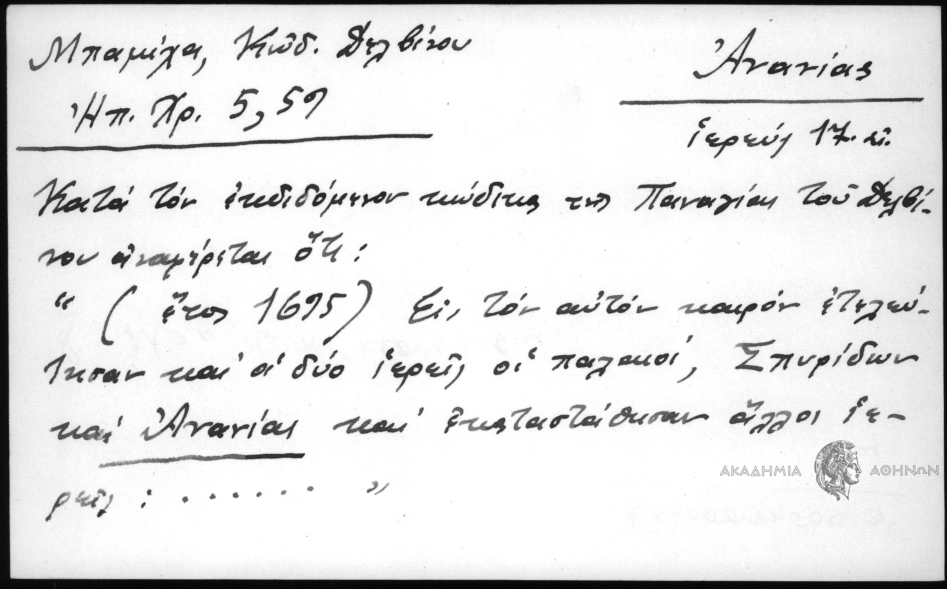 Μπαμίχα, Κώδ. Δελβίνου
Ἠπ. Χρ. 5, 59
Ἀνανίας
ἱερεύς 17. αἰ.
Κατά τόν ἐκδιδόμενον κώδικα τῆς Παναγίας τοῦ Δελβί-
νου ἀναφέρεται ὅτι :
“ ( ἔτος 1695) Εἰς τόν αὐτόν καιρόν ἐτελεύ-
τησαν καί οἱ δύο ἱερεῖς οἱ παλαιοί, Σπυρίδων
καί Ἀνανίας καί ἐκαταστάθησαν ἄλλοι ἱε-
ρεῖς : ...... ”
ΑΚΑΔΗΜΙΑ ΑΘΗΝΩΝ